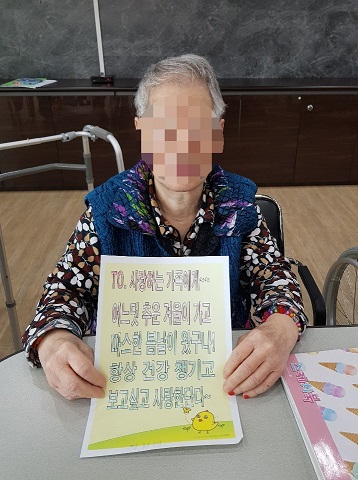 TO. 사랑하는 가족에게~
어느덧 추운 겨울이 가고
따스한 봄날이 왔구나!
항상 건강 챙기고
보고싶고 사랑한단다~
스케치북